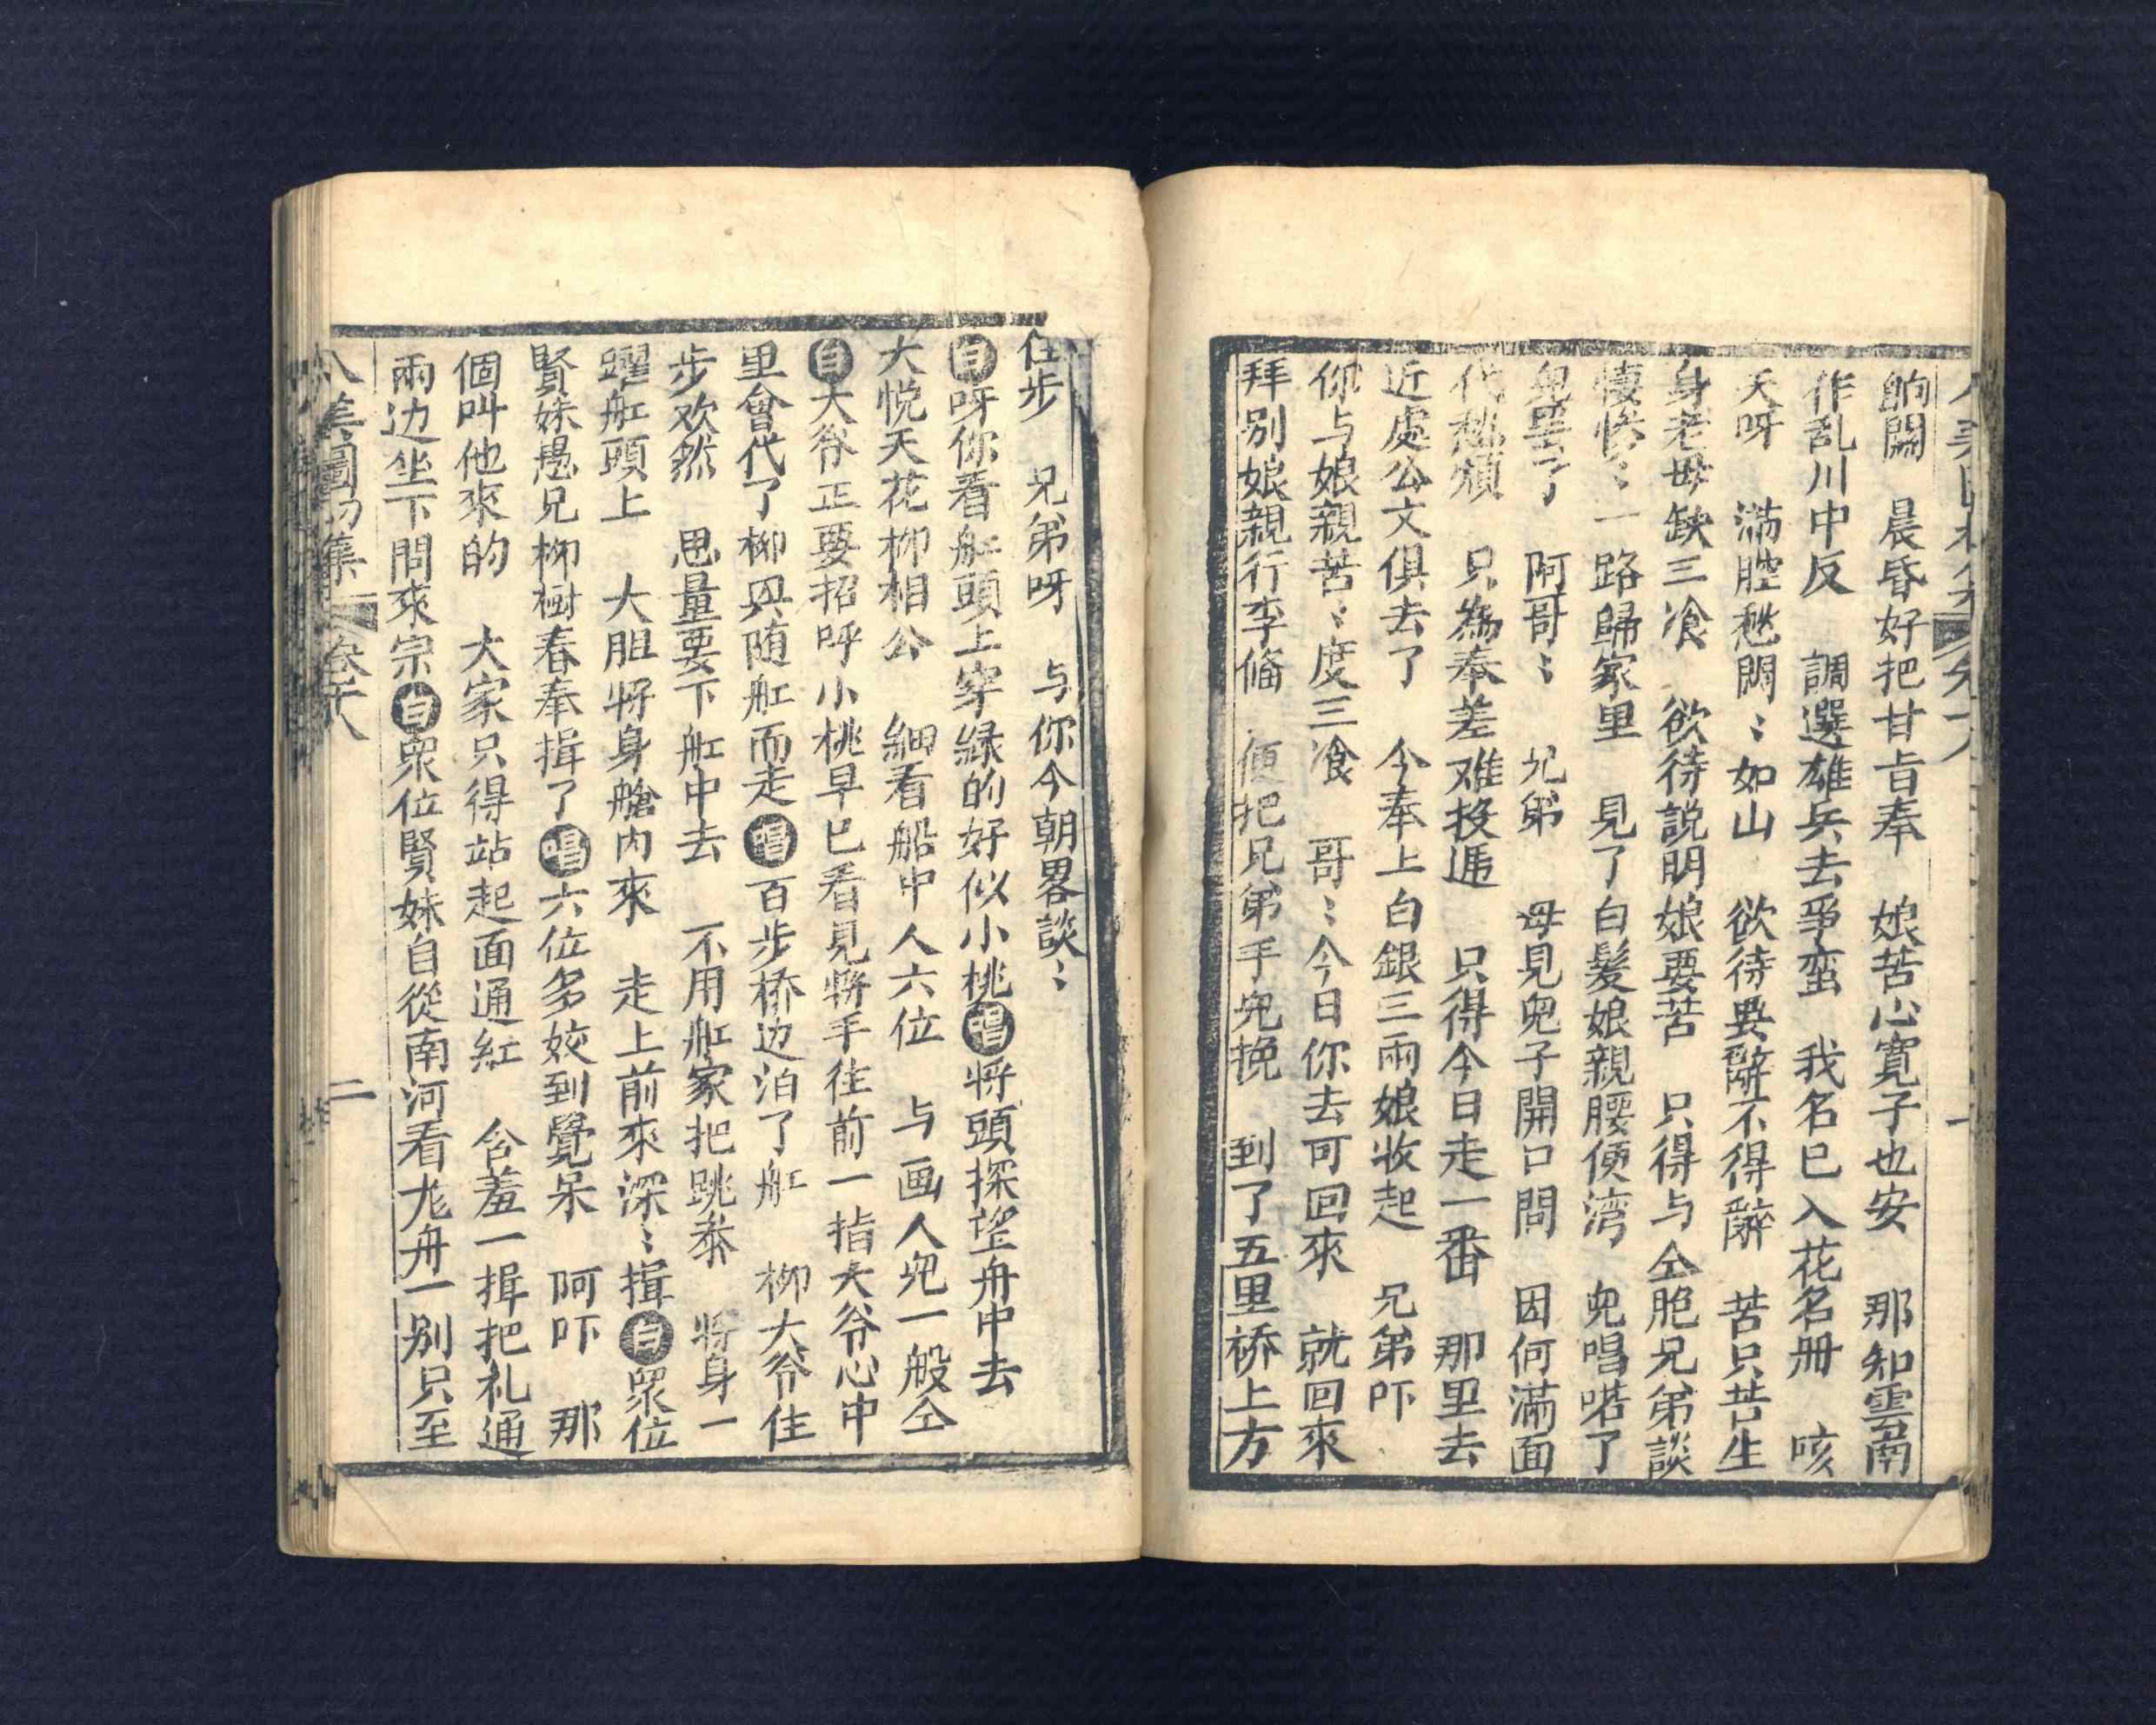 餉關　晨昏好把甘旨奉　娘苦心寬子也安　那知雲南
作乱川中反　調選雄兵去爭蛮　我名已入花名册　咳
天呀　滿腔愁悶〻如山　欲待要辭不得辭　苦只苦生
身老母缺三飡　欲待説明娘要苦　只得与仝胞兄弟談
悽慘〻一路歸家里　見了白髮娘親腰便湾　兜唱喏了
兜罢了　阿哥〻　兄弟　母見兜子開口問　因何滿面
代愁煩　只為奉差难投逓　只得今日走一番　那里去
近處公文俱去了　今奉上白銀三兩娘收起　兄弟吓
你与娘親苦〻度三飡　哥〻今日你去可回來　就回來
拜别娘親行李俻　便把兄弟手兜挽　到了五里桥上方
住步　兄弟呀　与你今朝畧談〻
白呀你看舡頭上穿緑的好似小桃唱将頭探望舟中去
大悦天花柳相公　細看船中人六位　与画人兜一般仝
白大爷正要招呼小桃早已看見将手往前一指大爷心中
里會代了柳興随舡而走唱百步桥边泊了舡　柳大爷住
步欢然　思量要下舡中去　不用舡家把跳㳟　将身一
躍舡頭上　大胆将身艙内來　走上前來深〻揖白眾位
賢妹愚兄柳樹春奉揖了唱六位多姣到覺呆　阿吓　那
個叫他來的　大家只得站起面通紅　含羞一揖把礼通
兩边坐下問來宗白眾位賢妹自從南河看龙舟一别只至
八美圖初集　卷十八　二